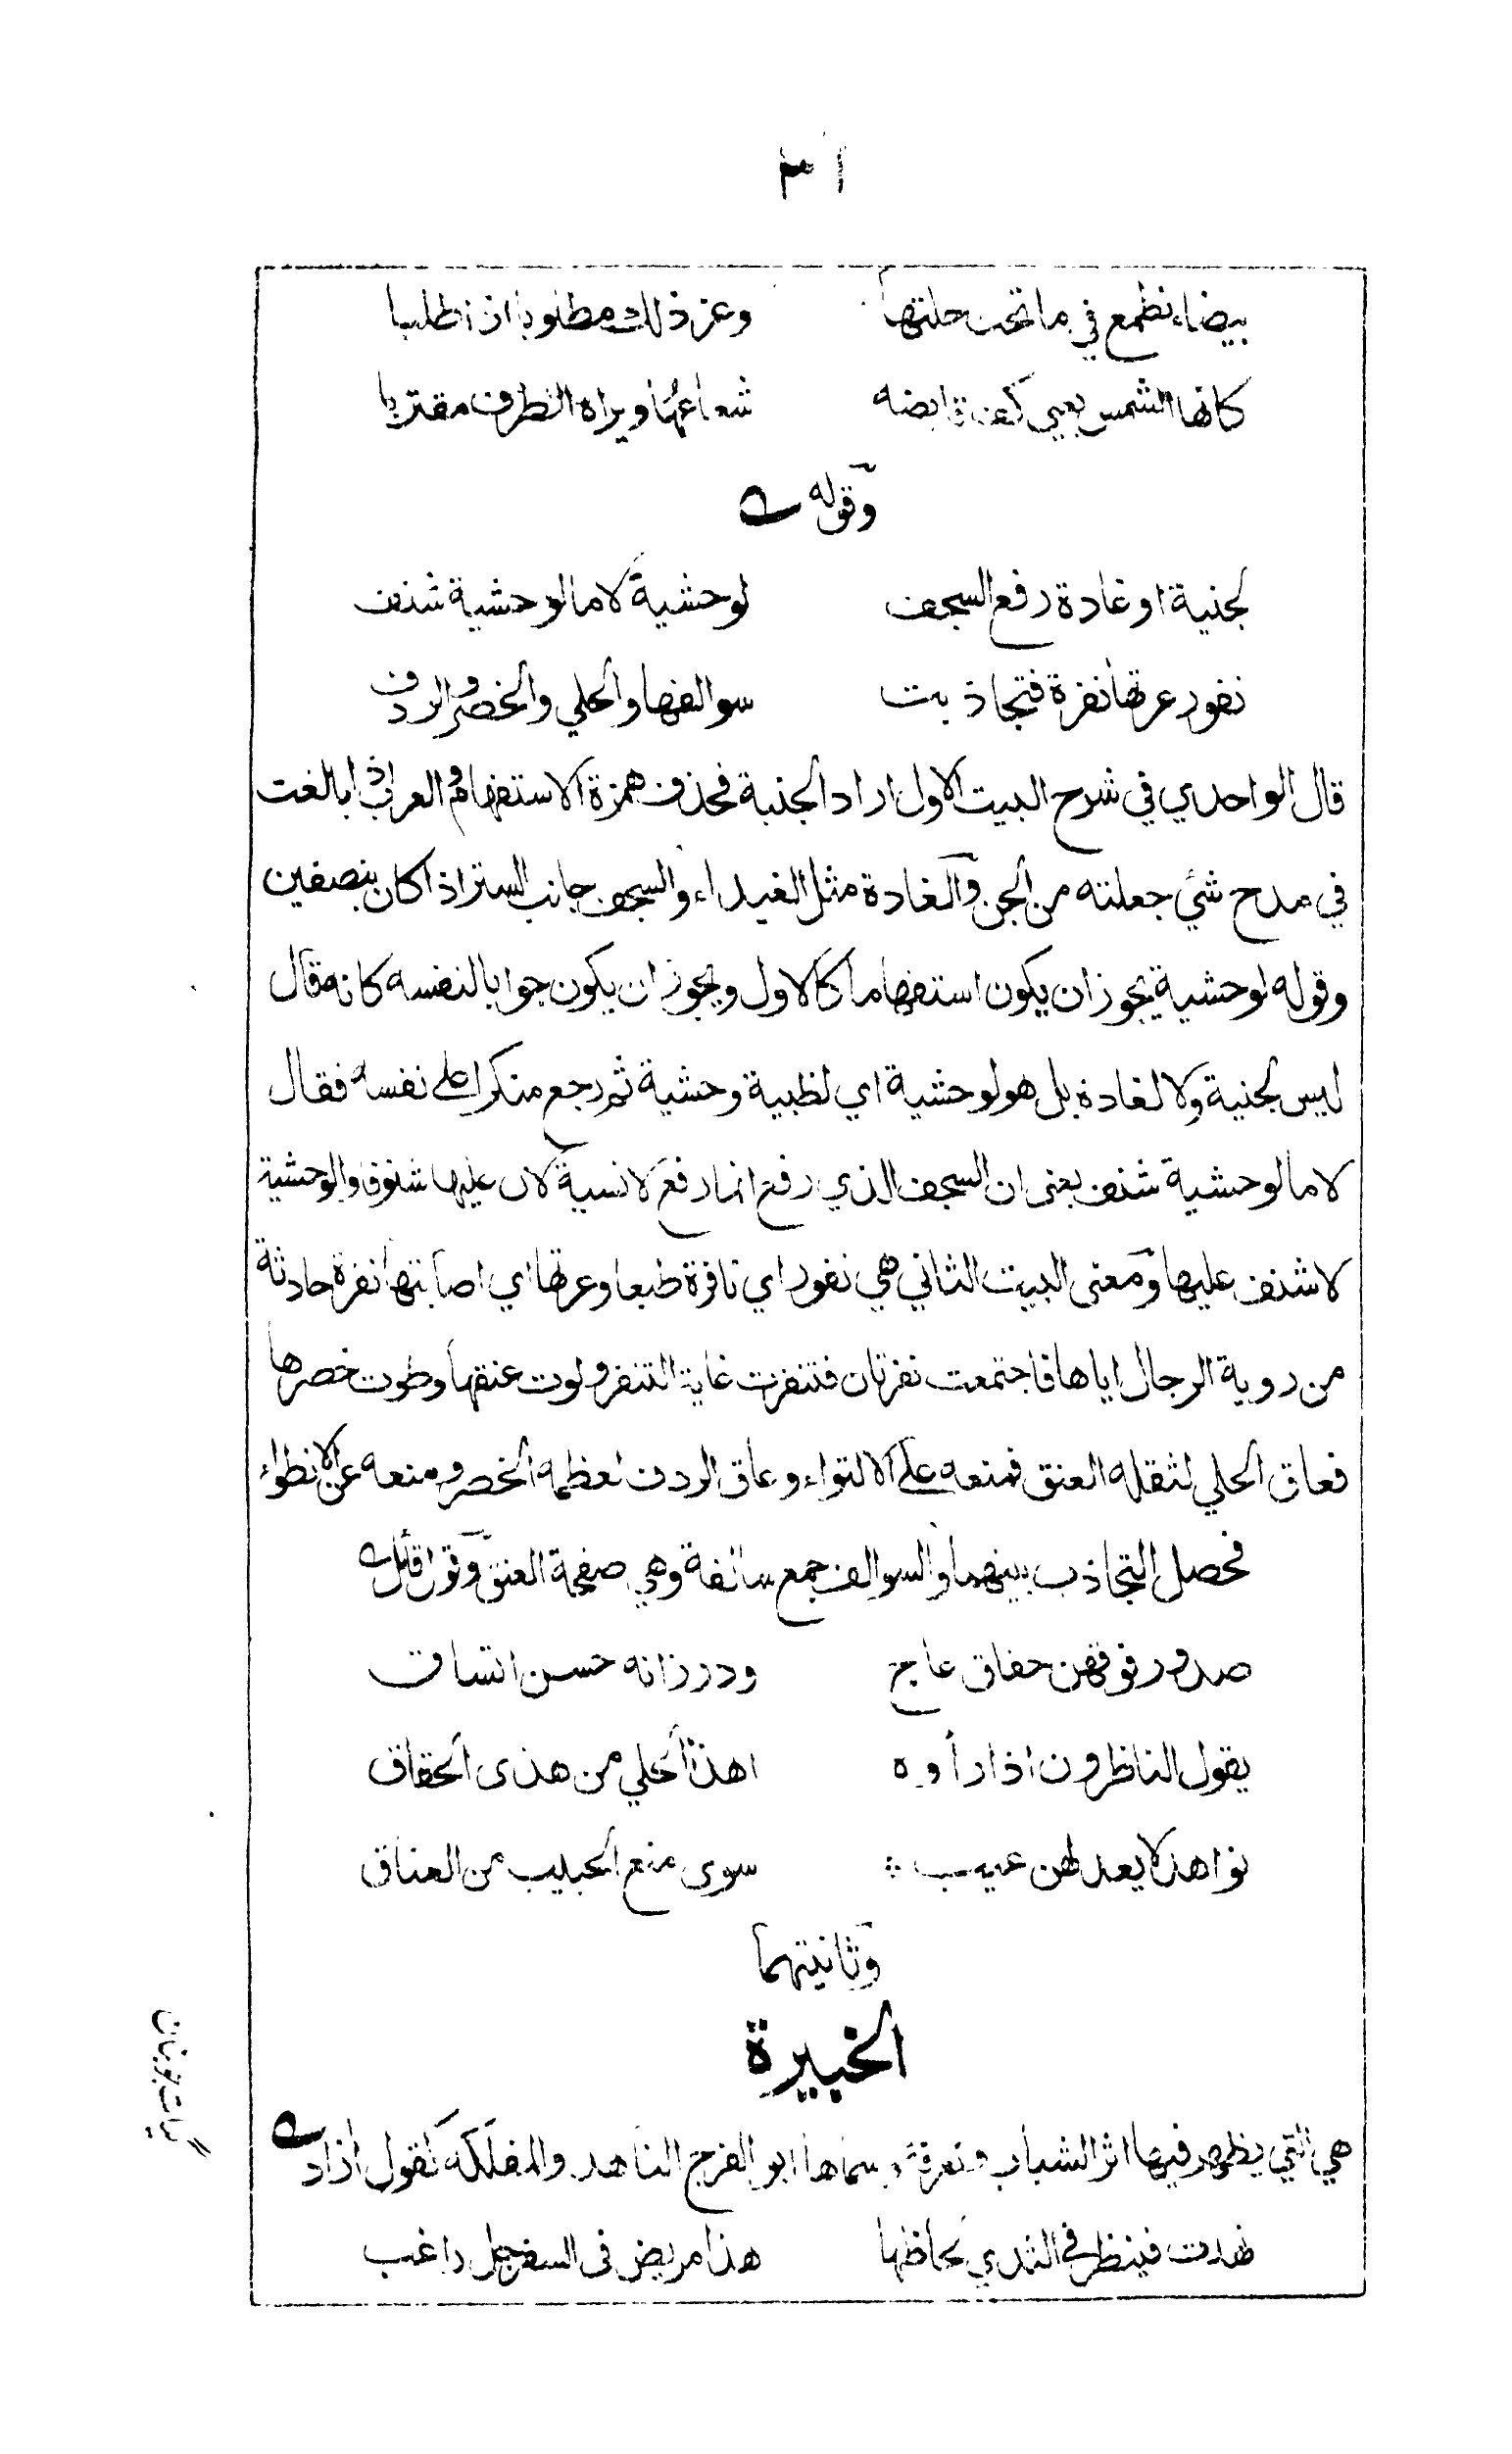 ٣١
بيضاء تطمع في ما تحت حلتها وعز ذلك مطلوبا اذا طلبا
كانها الشمس يعيي كف قابضه شعاعها ويراه الطرف مقتربا
وقوله
لجنية او غادة رفع السجف لوحشية لا ما لوحشية شنف
نفور عرتها نفرة فتجاذبت سوالفها والحلي والخصر والردف
قال الواحدي في شرح البيت الاول اراد الجنية فحذف همزة الاستفهام والعرب اذا بالغت
في مدح شئ جعلته من الجن والغادة مثل الغيداء والسجف جانب الستر اذا كان بنصفين
وقوله لوحشية يجوز ان يكون استفهاما كالاول ويجوز ان يكون جوابا لنفسه كانه قال
ليس لجنية ولا لغادة بل هو لوحشية اي لظبية وحشية ثم رجع منكرا على نفسه فقال
لا ما لوحشية شنف يعنى ان السجف الذي رفع انما رفع لانسية لان عليها شنوفا والوحشية
لا شنف عليها ومعنى البيت الثاني هي نفور اي نافرة طبعا وعرتها اي اصابتها نفرة حادثة
من روية الرجال اياها فاجتمعت نفرتان فتنفرت غاية التنفر ولوت عنقها وطوت خصرها
فعاق الحلي لثقله العنق فمنعه على الالتواء وعاق الردف لعظمه الخصر ومنعه عن الانطواء
فحصل التجاذب بينهما والسوالف جمع سالفة وهي صفحة العنق وقول قائل
صدور فوقهن حقاق عاج ودر زانه حسن اتساق
يقول الناظرون اذا رأوه اهذا الحلي من هذى الحقاق
نواهد لا يعد لهن عيب سوى منع الحبيب من العناق
وثانيتهما
الخبيرة
هي التي يظهر فيها اثر الشباب وتعرفه وسماها ابو الفرج الناهد والمفلكة لقول ازاد
نهدت فينظر في الثدي لحاظها هذا مريض فى السفرجل راغب